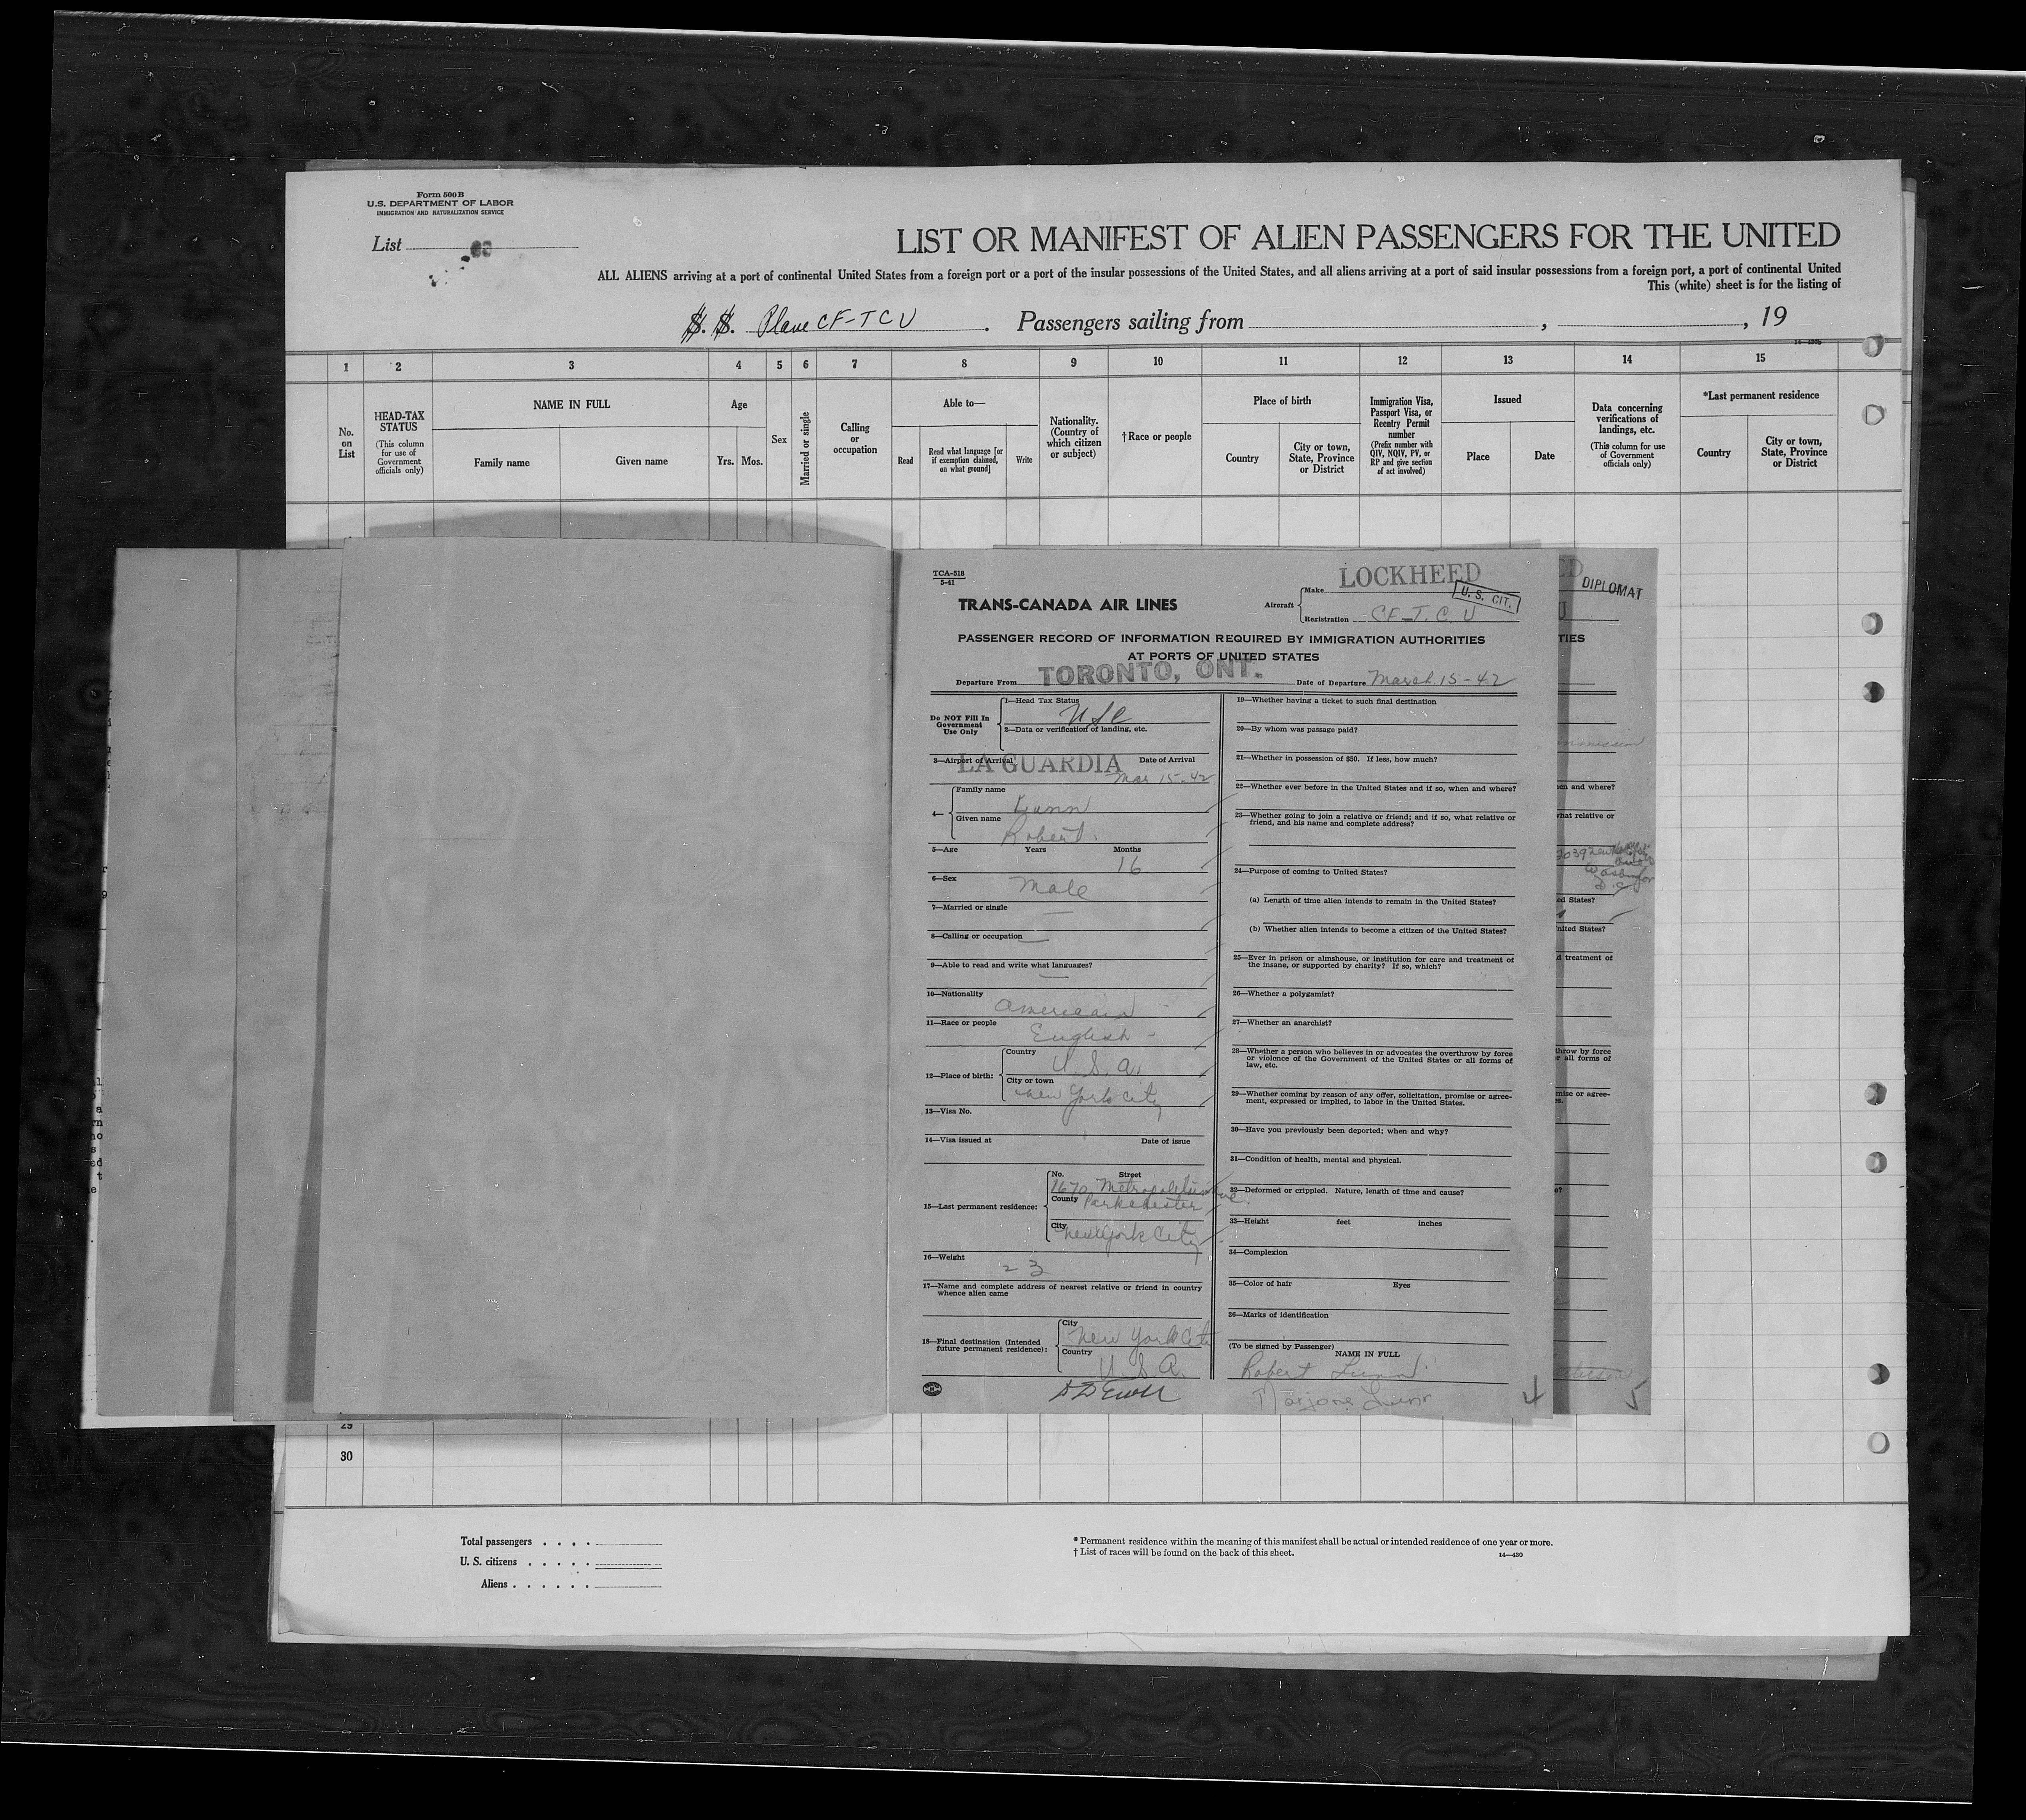 Form 500B
U.S. DEPARTMENT OF LABOR
IMMIGRATION AND NATURALIZATION SERVICE
List
LIST OR MANIFEST OF ALIEN PASSENGERS FOR THE UNITED
ALL ALIENS arriving at a port of continental United States from a foreign port or a port of the insular possessions of the United States, and all aliens arriving at a port of said insular possessions from a foreign port, a port of continental United
This (white) sheet is for the listing of
S. S. Plane CF-TCU. Passengers sailing from , , 19
1 2 3 4 5 6 7 8 9 10 11 12 13 14 15
No. on List
HEAD-TAX STATUS
(This column for use of Government officials only)
NAME IN FULL
Family name
Given name
Age
Yrs. Mos.
Sex
Married or single
Calling or occupation
Able to—
Read
Read what language [or if exemption claimed, on what ground]
Write
Nationality. (Country of which citizen or subject)
†Race or people
Place of birth
Country
City or town, State, Province or District
Immigration Visa, Passport Visa, or Reentry Permit number
(Prefix number with QIV, NQIV, PV, or RP and give section of act involved)
Issued
Place
Date
Data concerning verifications of landings, etc.
(This column for use of Government officials only)
*Last permanent residence
Country
City or town, State, Province or District
TCA-518
5-41
TRANS-CANADA AIR LINES
Aircraft
Make LOCKHEED
U. S. CIT.
Registration CF-T.C.U
PASSENGER RECORD OF INFORMATION REQUIRED BY IMMIGRATION AUTHORITIES
AT PORTS OF UNITED STATES
Departure From TORONTO, ONT. Date of Departure March 15-42
Do NOT Fill In Government Use Only
1—Head Tax Status USC
2—Data or verification of landing, etc.
3—Airport of Arrival LA GUARDIA Date of Arrival Mar 15-42
4— Family name Lunn
Given name Robert.
5—Age Years Months 16
6—Sex Male
7—Married or single —
8—Calling or occupation —
9—Able to read and write what languages? —
10—Nationality American -
11—Race or people English -
12—Place of birth: Country U.S.A.
City or town New York City
13—Visa No.
14—Visa issued at Date of issue
15—Last permanent residence: No. Street 1670 Metropolitan Ave
County Parkchester
City New York City
16—Weight 23
17—Name and complete address of nearest relative or friend in country whence alien came
18—Final destination (Intended future permanent residence): City New York City
Country U.S.A.
19—Whether having a ticket to such final destination
20—By whom was passage paid?
21—Whether in possession of $50. If less, how much?
22—Whether ever before in the United States and if so, when and where?
23—Whether going to join a relative or friend; and if so, what relative or
friend, and his name and complete address?
24—Purpose of coming to United States?
(a) Length of time alien intends to remain in the United States?
(b) Whether alien intends to become a citizen of the United States?
25—Ever in prison or almshouse, or institution for care and treatment of
the insane, or supported by charity? If so, which?
26—Whether a polygamist?
27—Whether an anarchist?
28—Whether a person who believes in or advocates the overthrow by force
or violence of the Government of the United States or all forms of
law, etc.
29—Whether coming by reason of any offer, solicitation, promise or agree-
ment, expressed or implied, to labor in the United States.
30—Have you previously been deported; when and why?
31—Condition of health, mental and physical.
32—Deformed or crippled. Nature, length of time and cause?
33—Height feet inches
34—Complexion
35—Color of hair Eyes
36—Marks of identification
(To be signed by Passenger)
NAME IN FULL
Robert Lunn
Marjorie Lunn
4
DIPLOMAT
U
TIES
en and where?
hat relative or
2039 New
Washington
D.C.
ed States?
nited States?
d treatment of
hrow by force
r all forms of
mise or agree-
s.
e?
5
29
30
Total passengers
U. S. citizens
Aliens
*Permanent residence within the meaning of this manifest shall be actual or intended residence of one year or more.
†List of races will be found on the back of this sheet.
14—430